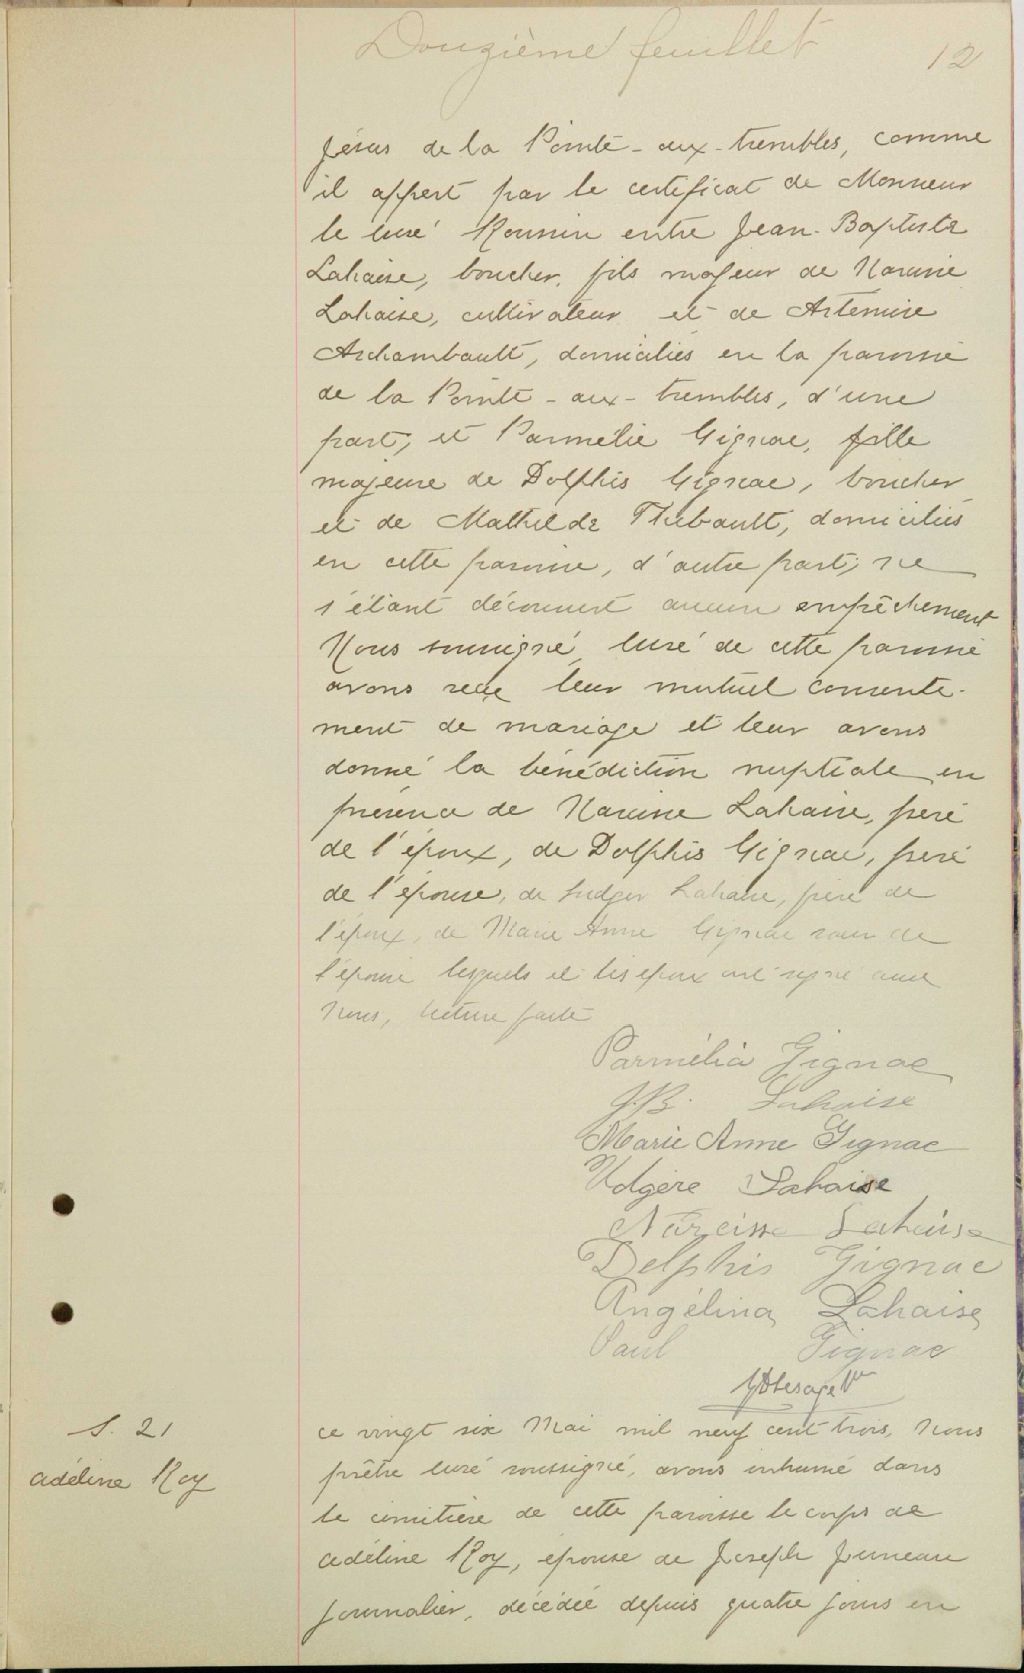 Douzième feuillet 12
Jésus de la Pointe-aux-trembles, comme
il appert par le certificat de Monsieur
le curé Roussin entre Jean-Baptiste
Lahaise, boucher, fils majeur de Narcisse
Lahaise, cultivateur et de Artemise
Archambault, domiciliés en la paroisse
de la Pointe-aux-trembles, d'une
part, et Parmélie Gignac, fille
majeure de Dolphis Gignac, boucher
et de Mathilde Thibault, domiciliés
en cette paroisse, d'autre part; ne
s'étant découvert aucun empêchement
Nous soussigné, curé de cette paroisse
avons reçu leur mutuel consente-
ment de mariage et leur avons
donné la bénédiction nuptiale en
présence de Narcisse Lahaise, père
de l'époux, de Dolphis Gignac, père
de l'épouse, de Ludger Lahaise, frère de
l'époux, de Marie Anne Gignac soeur de
l'épouse lesquels et les époux ont signé avec
nous, lecture faite
Parmélia Gignac
J.B. Lahaise
Marie Anne Gignac
Lahaise
Narcisse Lahaise
Delphis Gignac
Angélina Lahaise
Paul Gignac
Lesage
S. 21
Adéline Roy
ce vingt six Mai mil neuf cent trois, Nous
prêtre curé soussigné, avons inhumé dans
le cimitière de cette paroisse le corps de
Adéline Roy, épouse de Joseph Juneau
journalier, décédée depuis quatre jours en